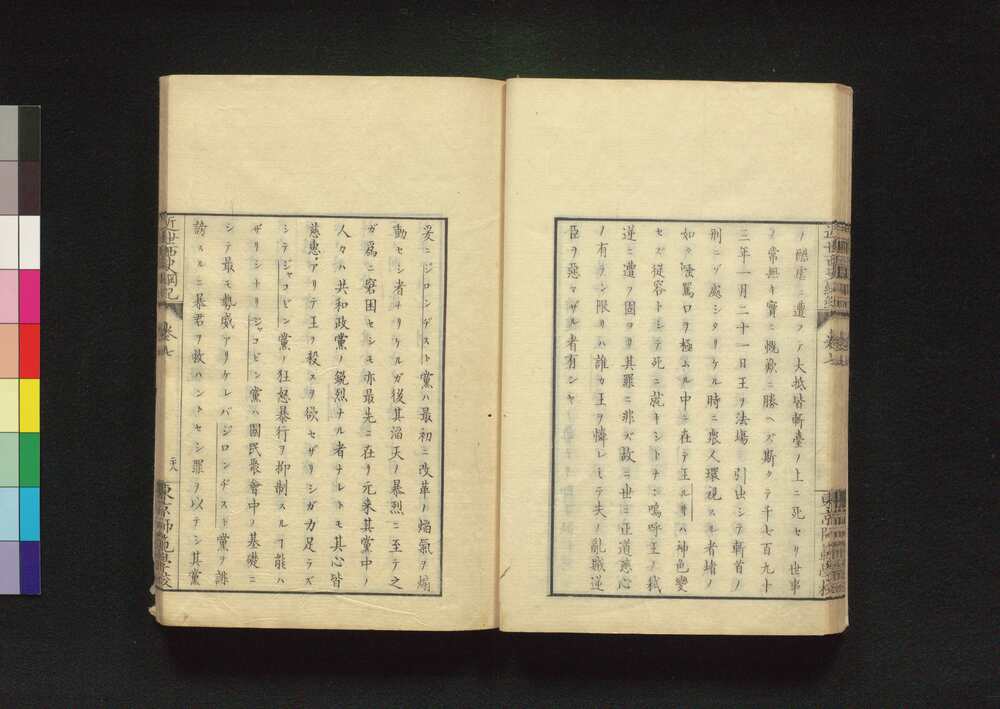 ノ酷虐ニ遭フテ大抵皆斬臺ノ上ニ死セリ世事
ノ常無キ實ニ慨歎ニ勝ヘズ斯クテ千七百九十
三年一月二十一日王ヲ法塲ニ引出シテ斬首ノ
刑ニゾ處シタリケル時ニ衆人環視スル者堵ノ
如ク嗤罵口ヲ極ムル中ニ在テ王ルイハ神色變
セズ從容トシテ死ニ就キシトナン嗚呼王ノ弑
逆ニ遭フ固ヨリ其罪ニ非ズ故ニ世ニ正道慈心
ノ有ラン限リハ誰カ王ヲ憐レミテ夫ノ亂賊逆
臣ヲ惡マザル者有ンヤ
近世西史綱紀
卷七
東京師範學校
爰ニジロンヂスト黨ハ最初ニ改革ノ焔氣ヲ煽
動セシ者ナリケルガ後其滔天ノ暴烈ニ至テ之
ガ爲ニ窘困セシモ亦最先ニ在リ元來其黨中ノ
人々ハ共和政黨ノ鋭烈ナル者ナレトモ其心皆
慈惠アリテ王ヲ殺スヲ欲セザリシガ力足ラズ
シテジャコビン黨ノ狂怒暴行ヲ抑制スルヿ能ハ
ザリシナリジャコビン黨ハ國民聚會中ノ基礎ニ
シテ最モ勢威アリケレバジロンヂスト黨ヲ誹
謗スルニ暴君ヲ救ハントセシ罪ヲ以テシ其黨
近世西史綱紀
卷七
二十八
東京師範學校